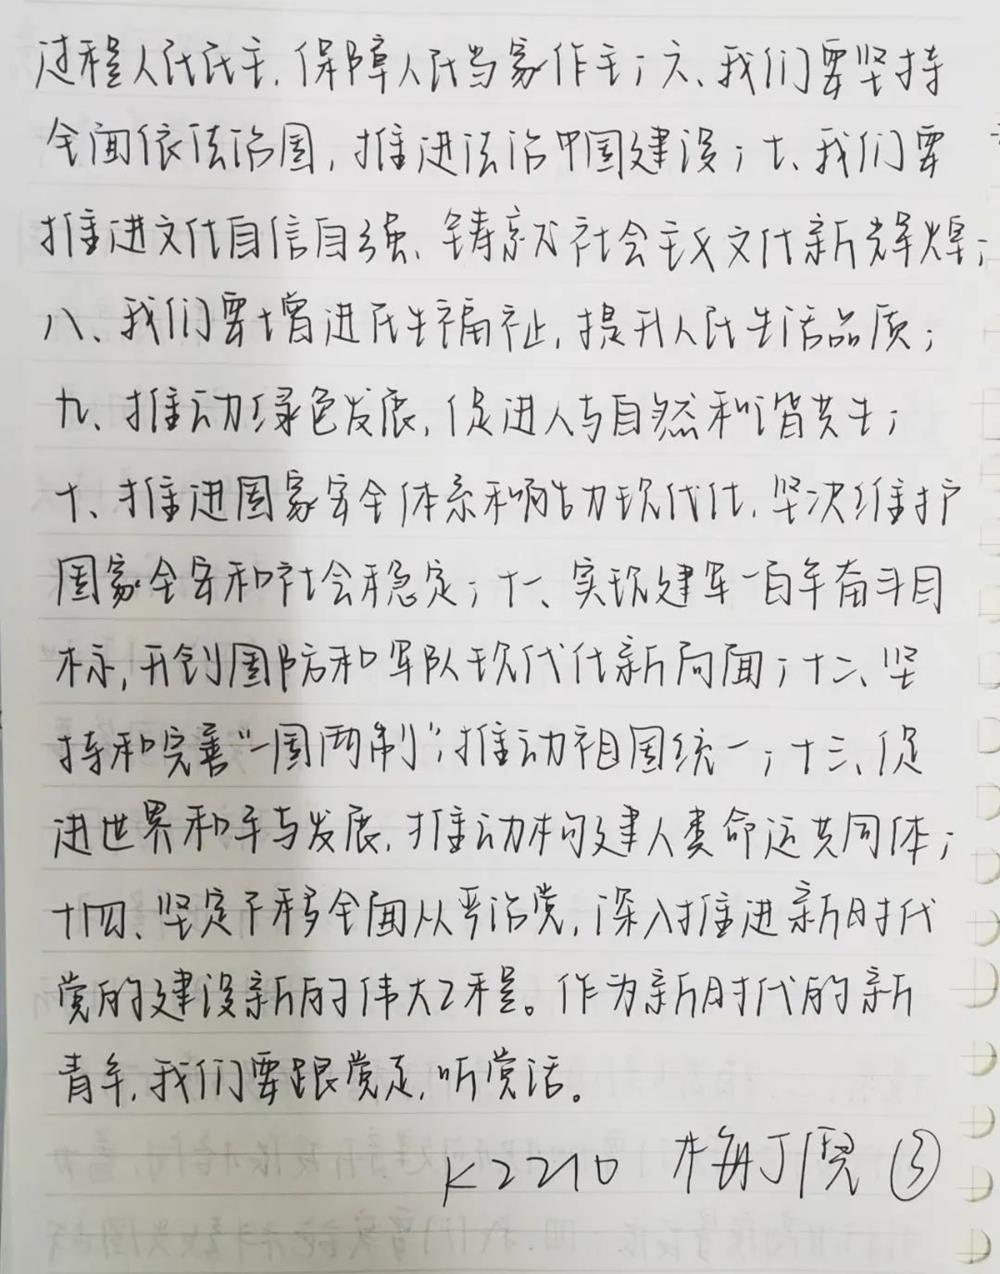 过程人民民主，保障人民当家作主；六、我们要坚持
全面依法治国，推进法治中国建设；七、我们要
推进文化自信自强、铸就社会主义文化新辉煌；
八、我们要增进民生福祉，提升人民生活品质；
九、推动绿色发展，促进人与自然和谐共生；
十、推进国家安全体系和能力现代化，坚决维护
国家安全和社会稳定；十一、实现建军一百年奋斗目
标，开创国防和军队现代化新局面；十二、坚
持和完善“一国两制”，推动祖国统一；十三、促
进世界和平与发展，推动构建人类命运共同体；
十四、坚定不移全面从严治党，深入推进新时代
党的建设新的伟大工程。作为新时代的新
青年，我们要跟党走，听党话。
K2210 梅 ③